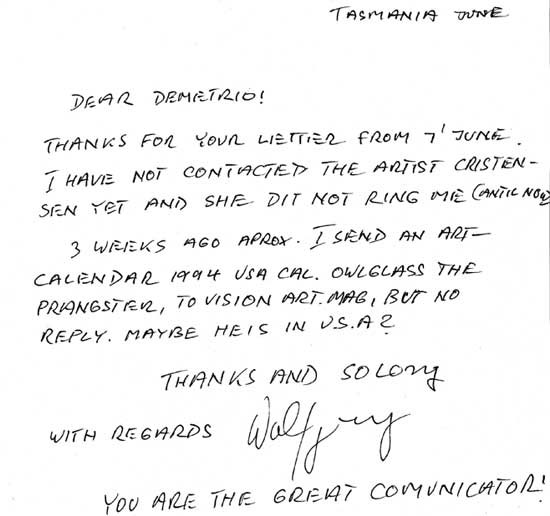 TASMANIA JUNE
DEAR DEMETRIO!
THANKS FOR YOUR LIETTER FROM 7' JUNE.
I HAVE NOT CONTACTED THE ARTIST CRISTEN-
SEN YET AND SHE DIT NOT RING ME (ANTIL NOW)
3 WEEKS AGO APROX. I SEND AN ART-
CALENDAR 1994 USA CAL. OWLGLASS THE
PRIANGSTER, TO VISION ART.MAG, BUT NO
REPLY. MAYBE HE IS IN U.S.A?
THANKS AND SO LONG
WITH REGARDS Wolfgang
YOU ARE THE GREAT COMUNICATOR!